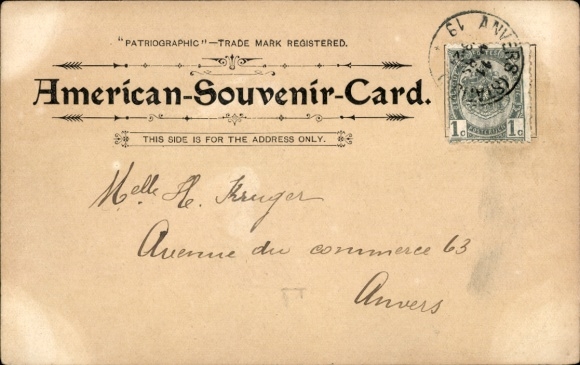 "PATRIOGRAPHIC"—TRADE MARK REGISTERED.
American-Souvenir-Card.
THIS SIDE IS FOR THE ADDRESS ONLY.
1c 1c
ANVERS
Melle H. Kruger
Avenue du commerce 63
Anvers